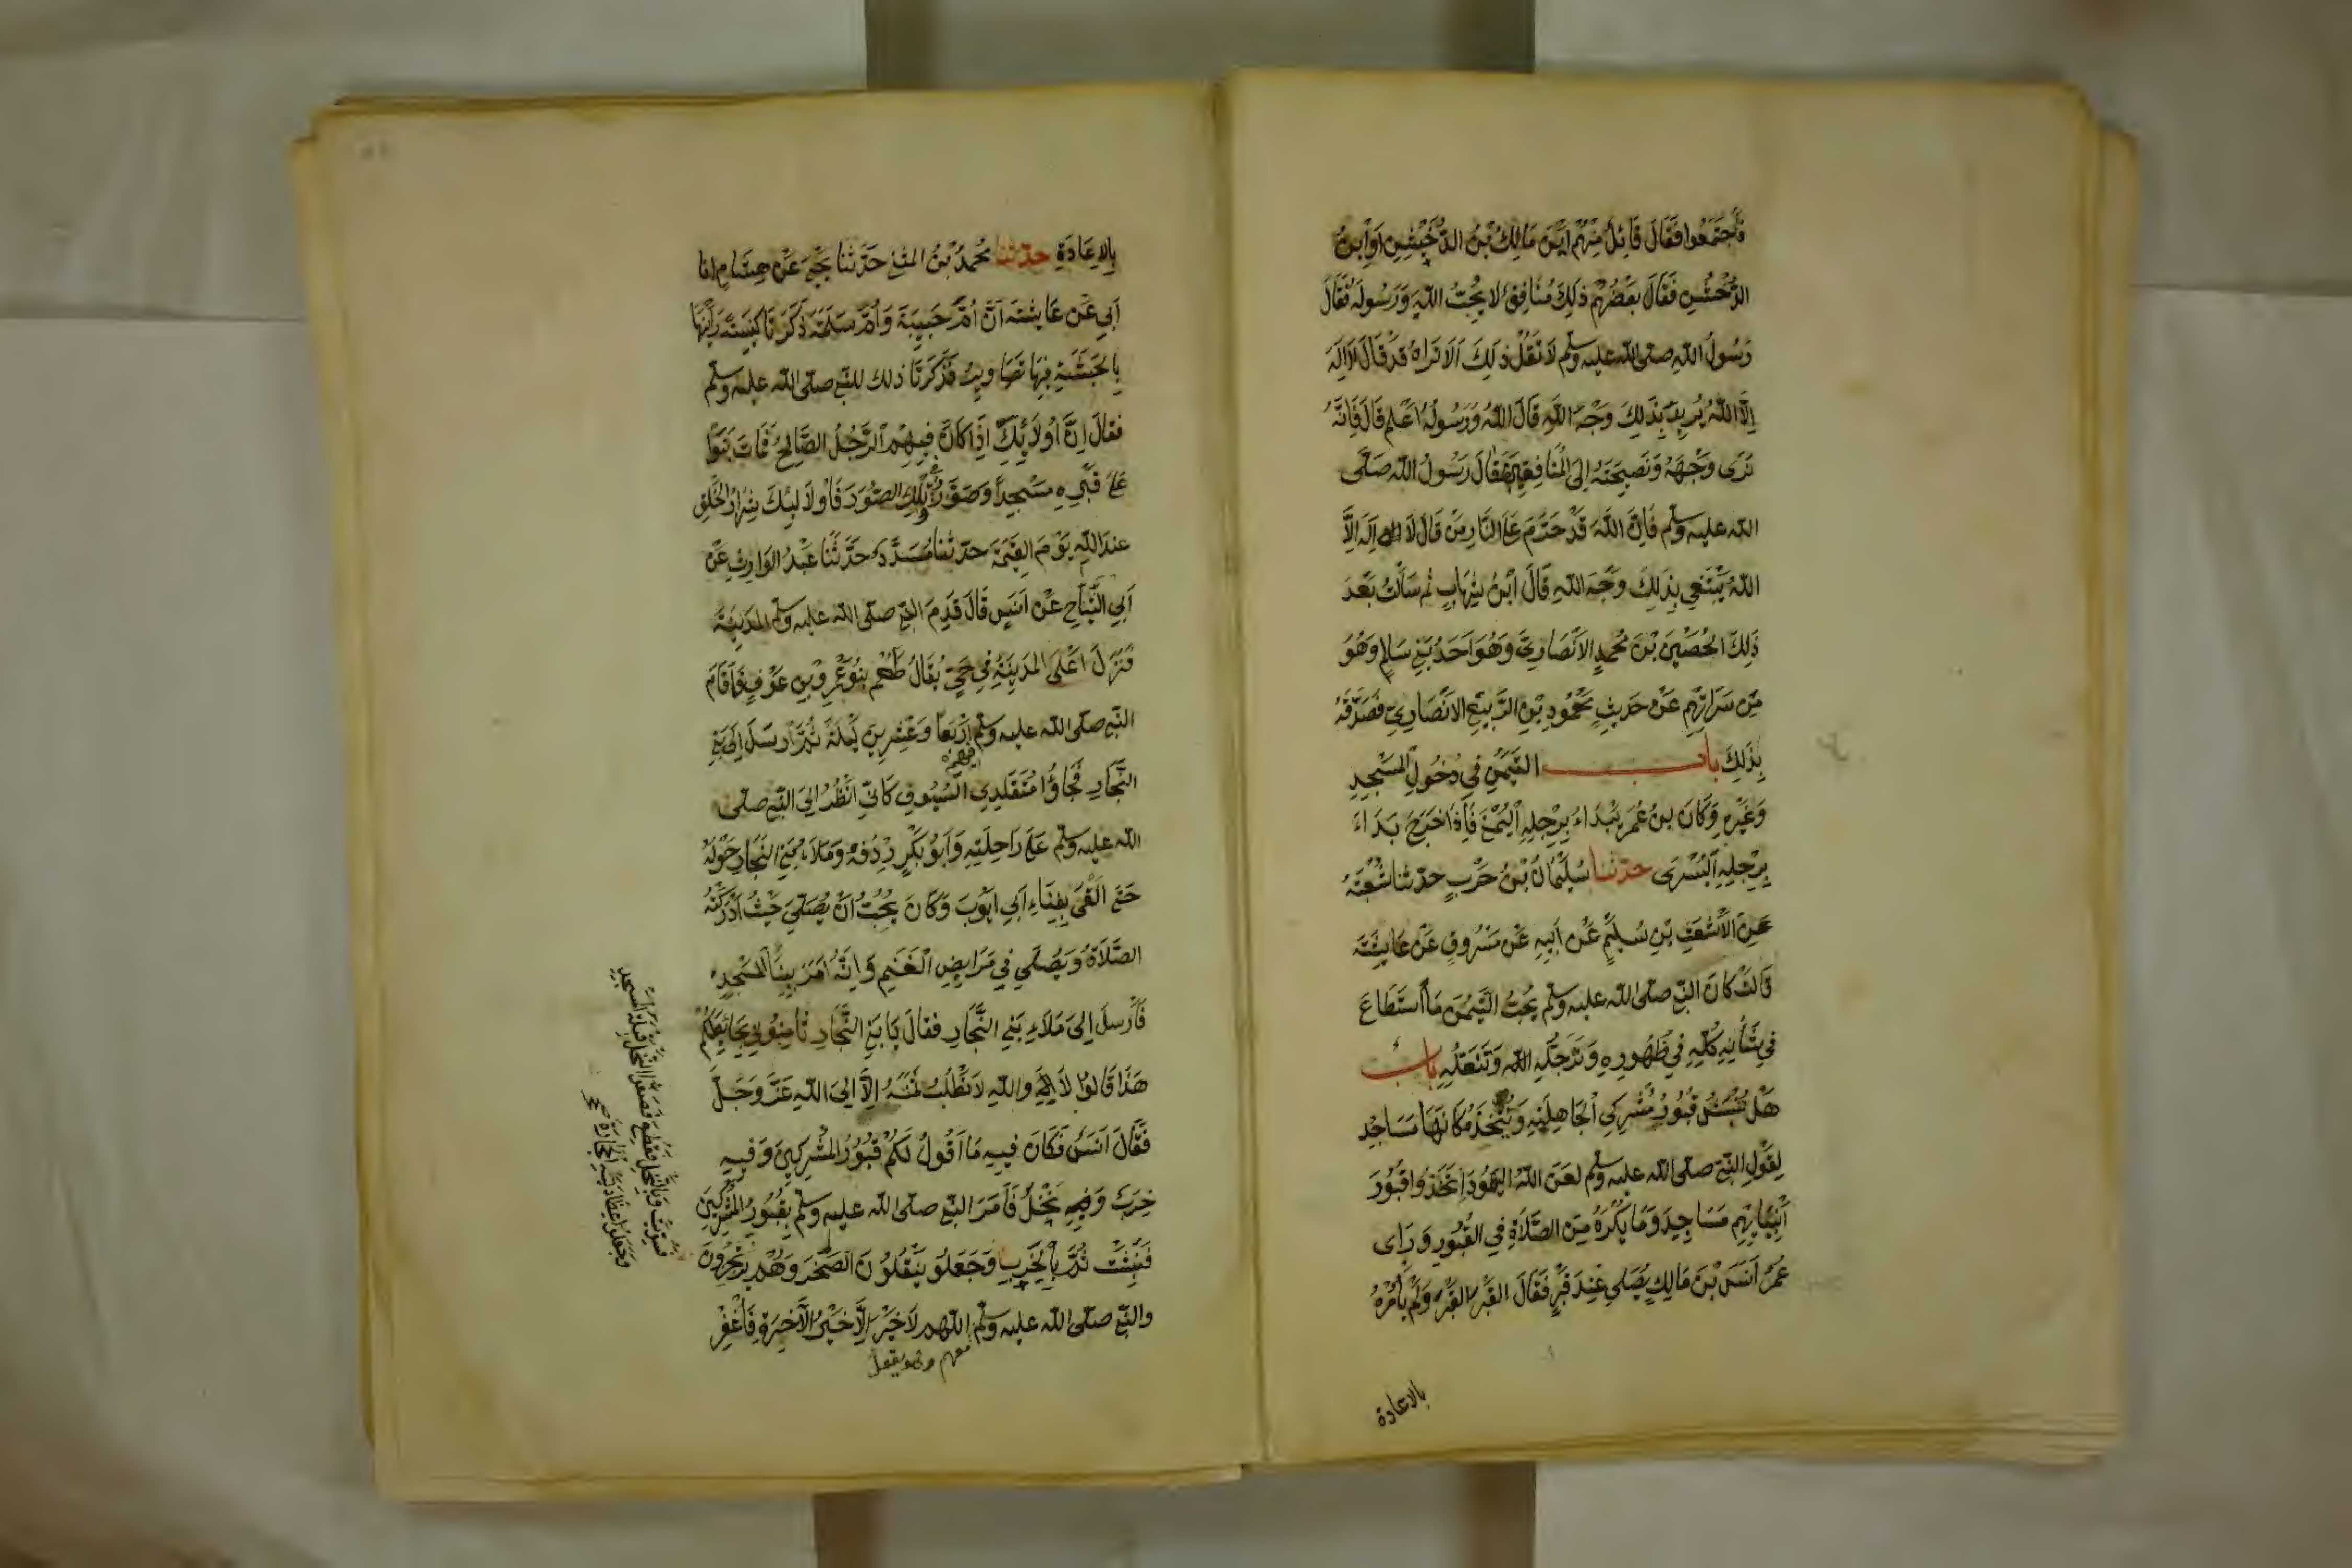 فَاجْتَمَعُوا فَقَالَ قَائِلٌ مِنْهُمْ اَيْنَ مَالِكُ بْنُ الدُّخَيْشِنِ اَوِ ابْنُ
الدُّخْشُنِ فَقَالَ بَعْضُهُمْ ذَلِكَ مُنَافِقٌ لَا يُحِبُّ اللّٰهَ وَرَسُولَهُ فَقَالَ
رَسُولُ اللّٰهِ صلى اللّٰه عليه وسلم لَا تَقُلْ ذٰلِكَ اَلَا تَرَاهُ قَدْ قَالَ لَا اِلَهَ
اِلَّا اللّٰهُ يُرِيدُ بِذَلِكَ وَجْهَ اللّٰهِ قَالَ اللّٰهُ وَرَسُولُهُ اَعْلَمُ قَالَ فَاِنَّهُ
نَرَى وَجْهَهُ وَنَصِيحَتَهُ اِلَى الْمُنَافِقِينَ فَقَالَ رَسُولُ اللّٰه صَلَّى
اللّٰه عليه وسلم فَاِنَّ اللّٰهَ قَدْ حَرَّمَ عَلَى النَّارِ مَنْ قَالَ لَا اِلَهَ اِلَّا
اللّٰهُ يَبْتَغِي بِذَلِكَ وَجْهَ اللّٰهِ قَالَ ابْنُ شِهَابٍ ثم سَاَلْتُ بَعْدَ
ذَلِكَ الْحُصَيْنَ بْنَ مُحَمَّدٍ الاَنْصَارِيَّ وَهُوَ اَحَدُ بَنِي سَالِمٍ وَهُوَ
مِنْ سَرَاتِهِمْ عَنْ حَدِيثِ مَحْمُودِ بْنِ الرَّبِيعِ الاَنْصَارِيِّ فَصَدَّقَهُ
بِذَلِكَ باب التَّيَمُّنِ فِي دُخُولِ الْمَسْجِدِ
وَغَيْرِهِ وَكَانَ بنُ عُمَرَ يَبْدَاءُ بِرِجْلِهِ الْيُمْنَى فَاِذَا خَرَجَ بَدَاءَ
بِرِجْلِهِ الْيُسْرَى حدّثنا سُلَيْمَانُ بْنُ حَرْبٍ حدّثنا شُعْبَةُ
عَنِ الْاَشْعَثِ بْنِ سُلَيْمٍ عَنْ اَبِيهِ عَنْ مَسْرُوقٍ عَنْ عَايِشَةَ
قَالَتْ كَانَ النَّبِيّ صلى اللّٰه عليه وسلم يُحِبُّ التَّيَمُّنَ مَا اسْتَطَاعَ
فِي شَاْنِهِ كُلِّهِ فِي طُهُورِهِ وَتَرَجُّلِهِ وَتَنَعُّلِهِ باب
هَلْ تُنْبَشُ قُبُورُ مُشْرِكِي الْجَاهِلِيَّةِ وَيُتَّخَذُ مَكَانَهَا مَسَاجِدَ
لِقَوْلِ النَّبِيّ صلى اللّٰه عليه وسلم لَعَنَ اللّٰهُ الْيَهُودَ اِتَّخَذُوا قُبُورَ
اَنْبِيَائِهِمْ مَسَاجِدَ وَمَا يُكْرَهُ مِنَ الصَّلَاةِ فِي الْقُبُورِ وَرَاى
عُمَرُ اَنَسَ بْنَ مَالِكٍ يُصَلِّي عِنْدَ قَبْرٍ فَقَالَ الْقَبْرَ الْقَبْرَ وَلَمْ يَاْمُرْهُ
بالاعادة
بِالاِعَادَةِ حدّثنا مُحَمَّدُ بْنُ المثنى حَدَّثَنَا يَحْيَى عَنْ هِشَامٍ انا
اَبِي عَنْ عَايِشَةَ اَنَّ اُمَّ حَبِيبَةَ وَاُمَّ سَلَمَةَ ذَكَرَتَا كَنِيسَةً رَاَيْنَهَا
بِالْحَبَشَةِ فِيهَا تَصَاوِيرُ فَذَكَرَتَا ذلك للنبي صلى اللّٰه عليه وسلم
فقَالَ اِنَّ اُولَائِكَ اِذَا كَانَ فِيهِمُ الرَّجُلُ الصَّالِحُ فَمَاتَ بَنَوْا
عَلَى قَبْرِهِ مَسْجِدًا وَصَوَّرُوا تِلْكَ الصُّوَرَ فَاُولَائِكَ شِرَارُ الْخَلْقِ
عِنْدَ اللّٰهِ يَوْمَ الْقِيٰمَةِ حدّثنا مُسَدَّدٌ حَدَّثَنَا عَبْدُ الْوَارِثِ عَنْ
اَبِي التَّيَّاحِ عَنْ اَنَسٍ قَالَ قَدِمَ النَّبِيّ صلى اللّٰه عليه وسلم المَدِينَةَ
فَنَزَلَ اَعْلَى الْمَدِينَةِ فِي حَيٍّ يُقَالُ لَهُمْ بَنُو عَمْرِو بْنِ عَوْفٍ فَاَقَامَ
النَّبِيّ صلى اللّٰه عليه وسلم فيهم اَرْبَعًا وَعِشْرِينَ لَيْلَةً ثُمَّ اَرْسَلَ اِلَى بَنِي
النَّجَّارِ فَجَاؤُا مُتَقَلِّدِي السُّيُوفِ كَاَنِّي اَنْظُرُ اِلَى النَّبِيّ صلى
اللّٰه عليه وسلم عَلَى رَاحِلَتِهِ وَاَبُو بَكْرٍ رِدْفُهُ وَمَلَاءُ بَنِي النَّجَّارِ حَوْلَهُ
حَتَّى اَلْقَى بِفِنَاءِ اَبِي اَيُّوبَ وَكَانَ يُحِبُّ اَنْ يُصَلِّيَ حَيْثُ اَدْرَكَتْهُ
الصَّلَاةُ وَيُصَلِّي فِي مَرَابِضِ الْغَنَمِ وَاِنَّهُ اَمَرَ بِبِنَاءِ الْمَسْجِدِ
فَاَرْسَلَ اِلَى مَلَاءِ بَنِي النَّجَّارِ فَقَالَ يَا بَنِي النَّجَّارِ ثَامِنُونِي بِحَائِطِكُمْ
هَذَا قَالُوا لَا وَاللّٰهِ لَا نَطْلُبُ ثَمَنَهُ اِلَّا اِلَى اللّٰهِ عَزَّ وَجَلَّ
فَقَالَ اَنَسٌ فَكَانَ فِيهِ مَا اَقُولُ لَكُمْ قُبُورُ الْمُشْرِكِينَ وَفِيهِ
خِرَبٌ وَفِيهِ نَخْلٌ فَاَمَرَ النَّبِيّ صلى اللّٰه عليه وسلم بِقُبُورِ الْمُشْرِكِينَ
فَنُبِشَتْ ثُمَّ بِالْخَرِبِ وَجَعَلُو يَنْقُلُونَ الصَّخْرَ وَهُمْ يَرْتَجِزُونَ
والنبي صلى اللّٰه عليه وسلم اللّٰهم لَا خَيْرَ اِلَّا خَيْرُ الْآخِرَةِ فَاغْفِرْ
معهم وهو يقول
فَسُوِّيَتْ وَبِالنَّخْلِ فَقُطِعَ فَصَفُّوا النَّخْلَ قِبْلَةَ الْمَسْجِدِ
وَجَعَلُوا عِضَادَتَيْهِ الْحِجَارَةَ صح